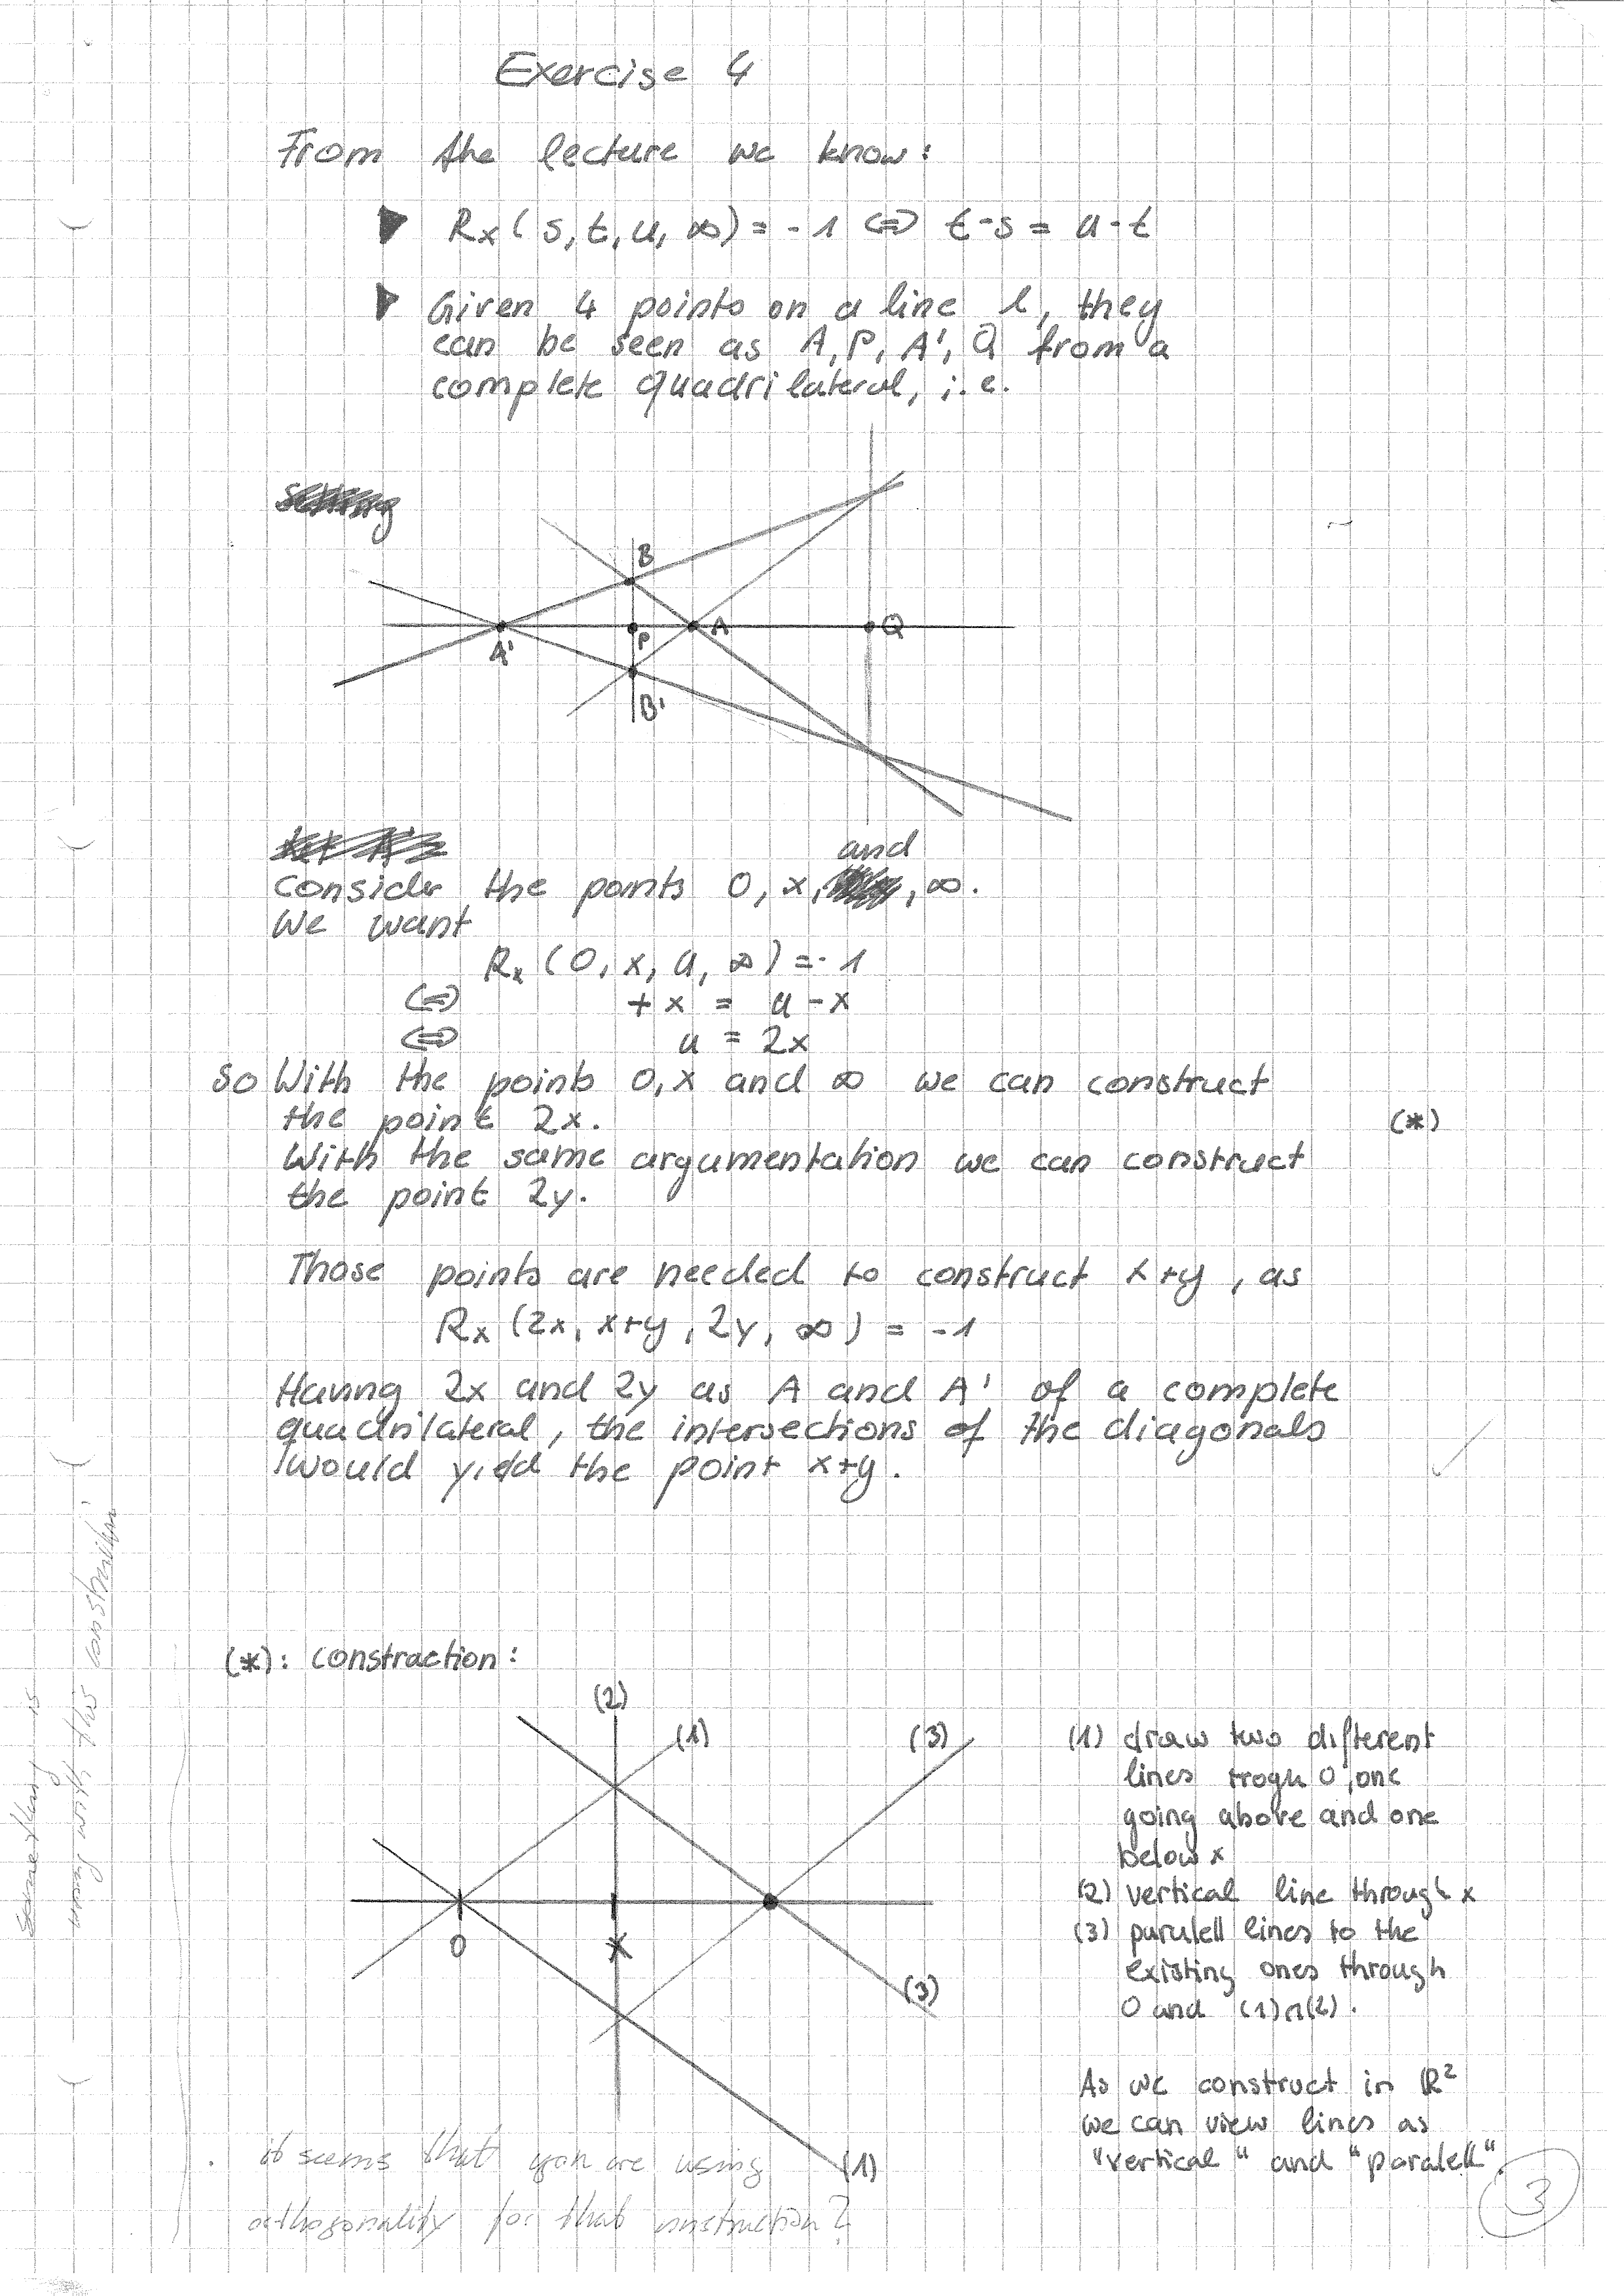 Exercise 4
From the lecture we know:
▶ Rx(s, t, u, ∞) = -1 ⇔ t-s = u-t
▶ Given 4 points on a line l, they
can be seen as A, P, A', Q from a
complete quadrilateral, i.e.
B
A' P A Q
B'
and
Consider the points 0, x, , ∞.
We want
Rx (0, x, u, ∞) = -1
⇔ + x = u - x
⇔ u = 2x
So With the points 0, x and ∞ we can construct
the point 2x. (*)
With the same argumentation we can construct
the point 2y.
Those points are needed to construct x+y, as
Rx (2x, x+y, 2y, ∞) = -1
Having 2x and 2y as A and A' of a complete
quadrilateral, the intersections of the diagonals
would yield the point x+y.
Something is
wrong with this construction
(*): constraction:
(2)
(1)
(3)
0
x
(3)
(1)
(1) draw two different
lines trogh 0, one
going above and one
below x
(2) vertical line through x
(3) parulell lines to the
existing ones through
0 and (1)∩(2).
As we construct in ℝ²
we can view lines as
"vertical" and "paralell".
it seems that you are using
orthogonality for that construction?
3